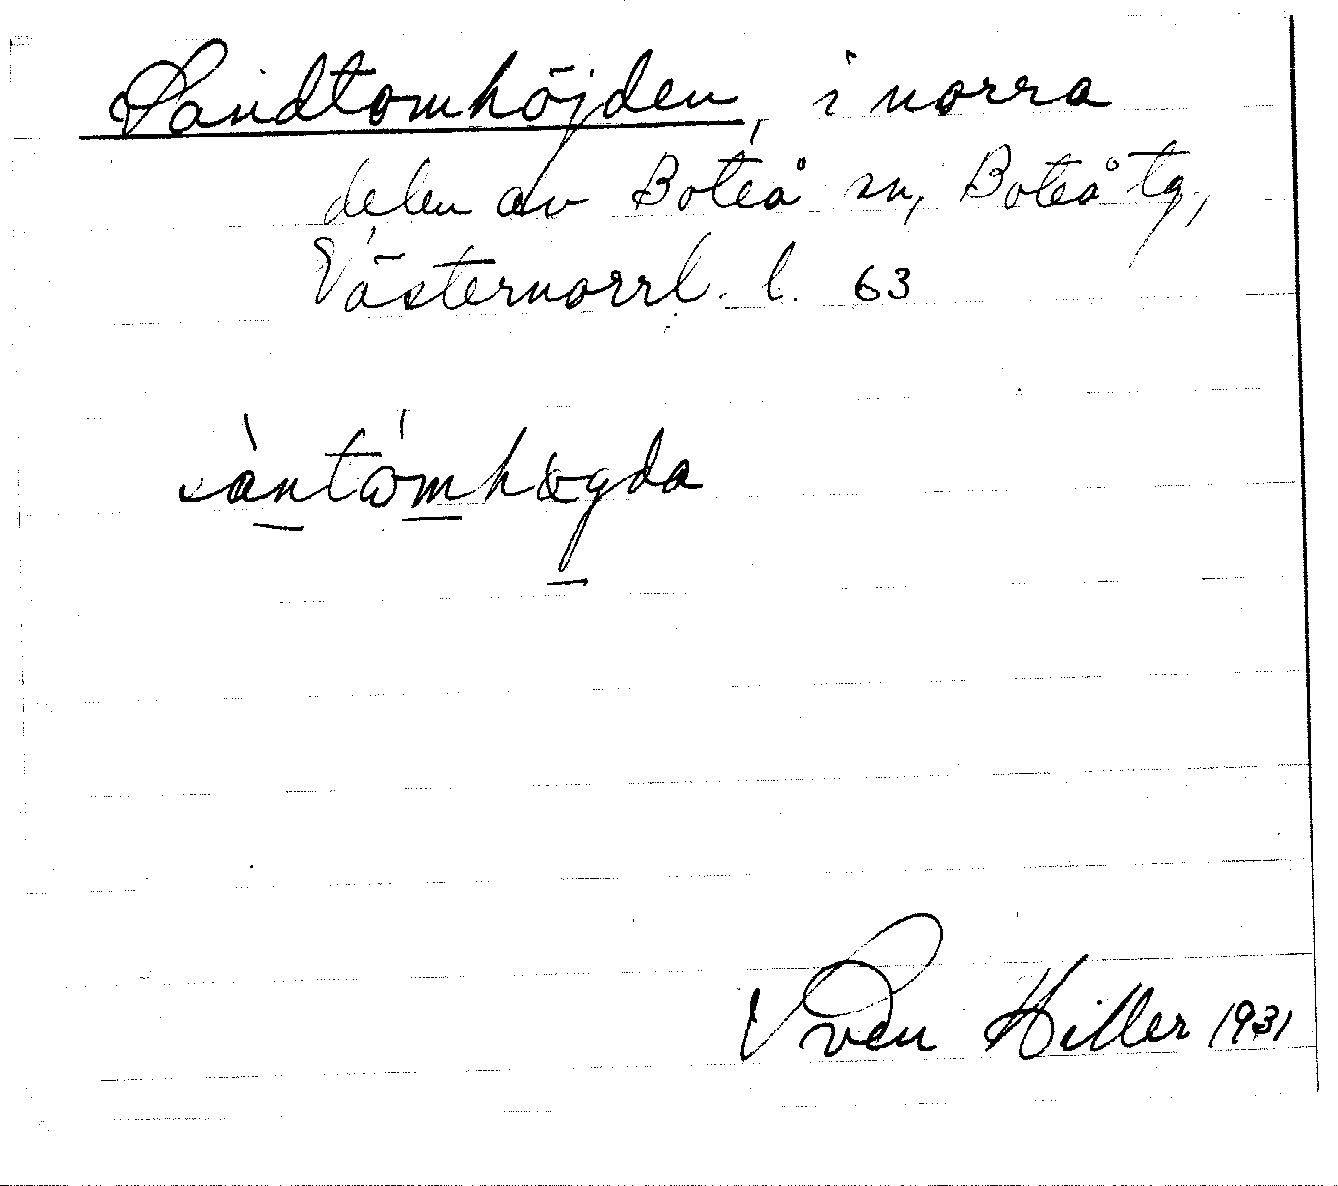 Sandtomhöjden, i norra
delen av Boteå sn, Boteå tg,
Västernorrl. l. 63
sàntómhøgda
Sven Hiller 1931